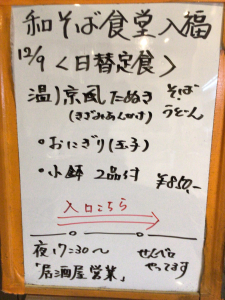 和そば食堂入福
12/9 <日替定食>
温)京風たぬき そば
(きざみあんかけ) うどん
・おにぎり(玉子)
・小鉢 2品付 ¥850,-
入口こちら
夜17:30〜 せんべろ
"居酒屋営業" やってます